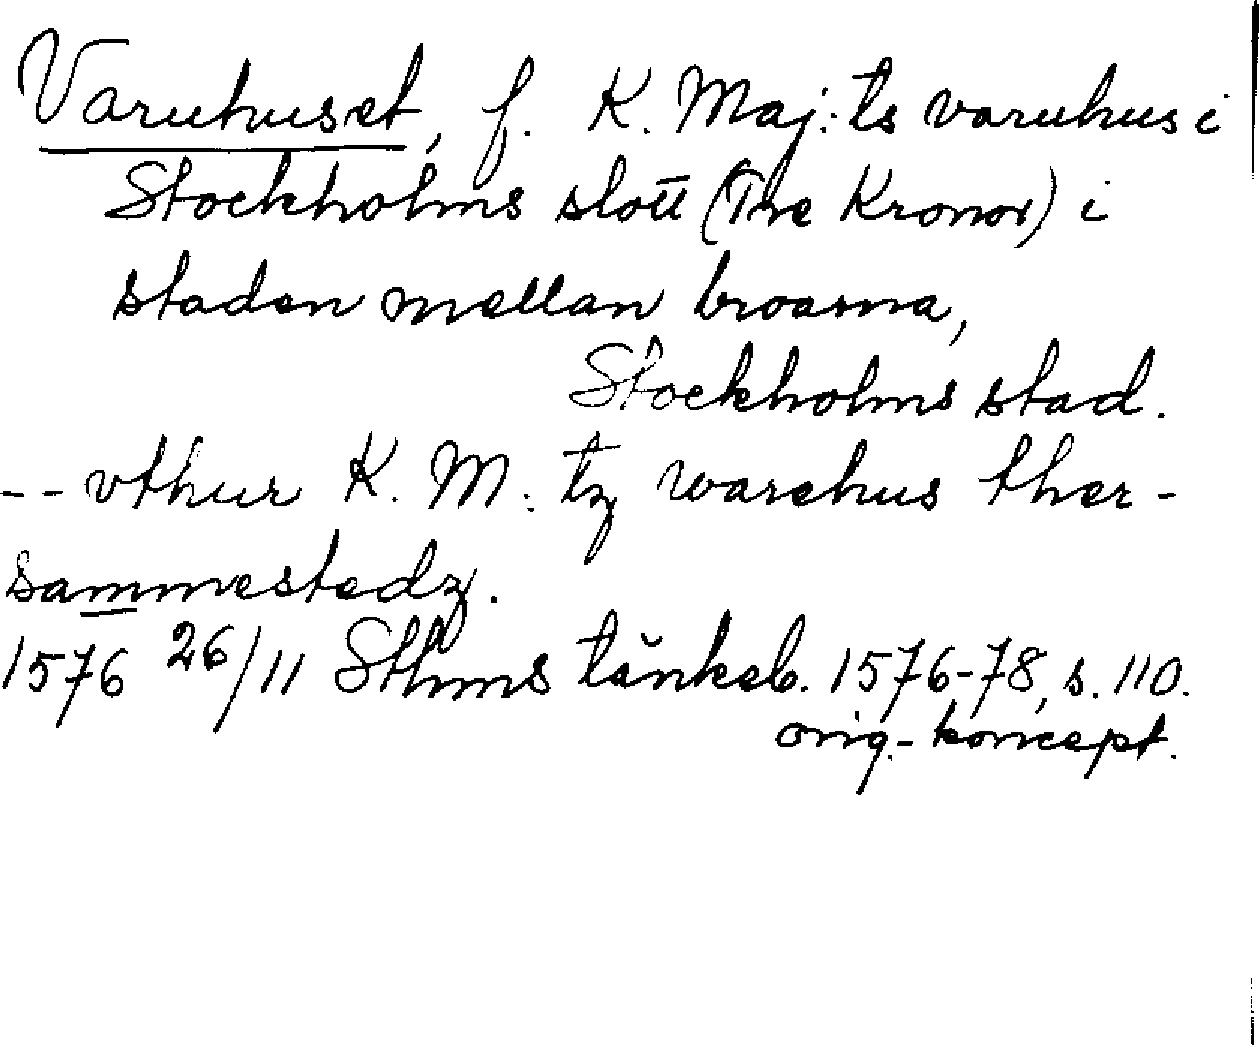 Varuhuset, f. K. Maj:ts varuhus i
Stockholms slott (Tre Kronor) i
staden mellan broarna,
Stockholms stad.
-- vthur K. M: tz warehus ther-
sammestedz.
1576 26/11 Sthms tänkeb. 1576-78, s. 110.
orig.-koncept.